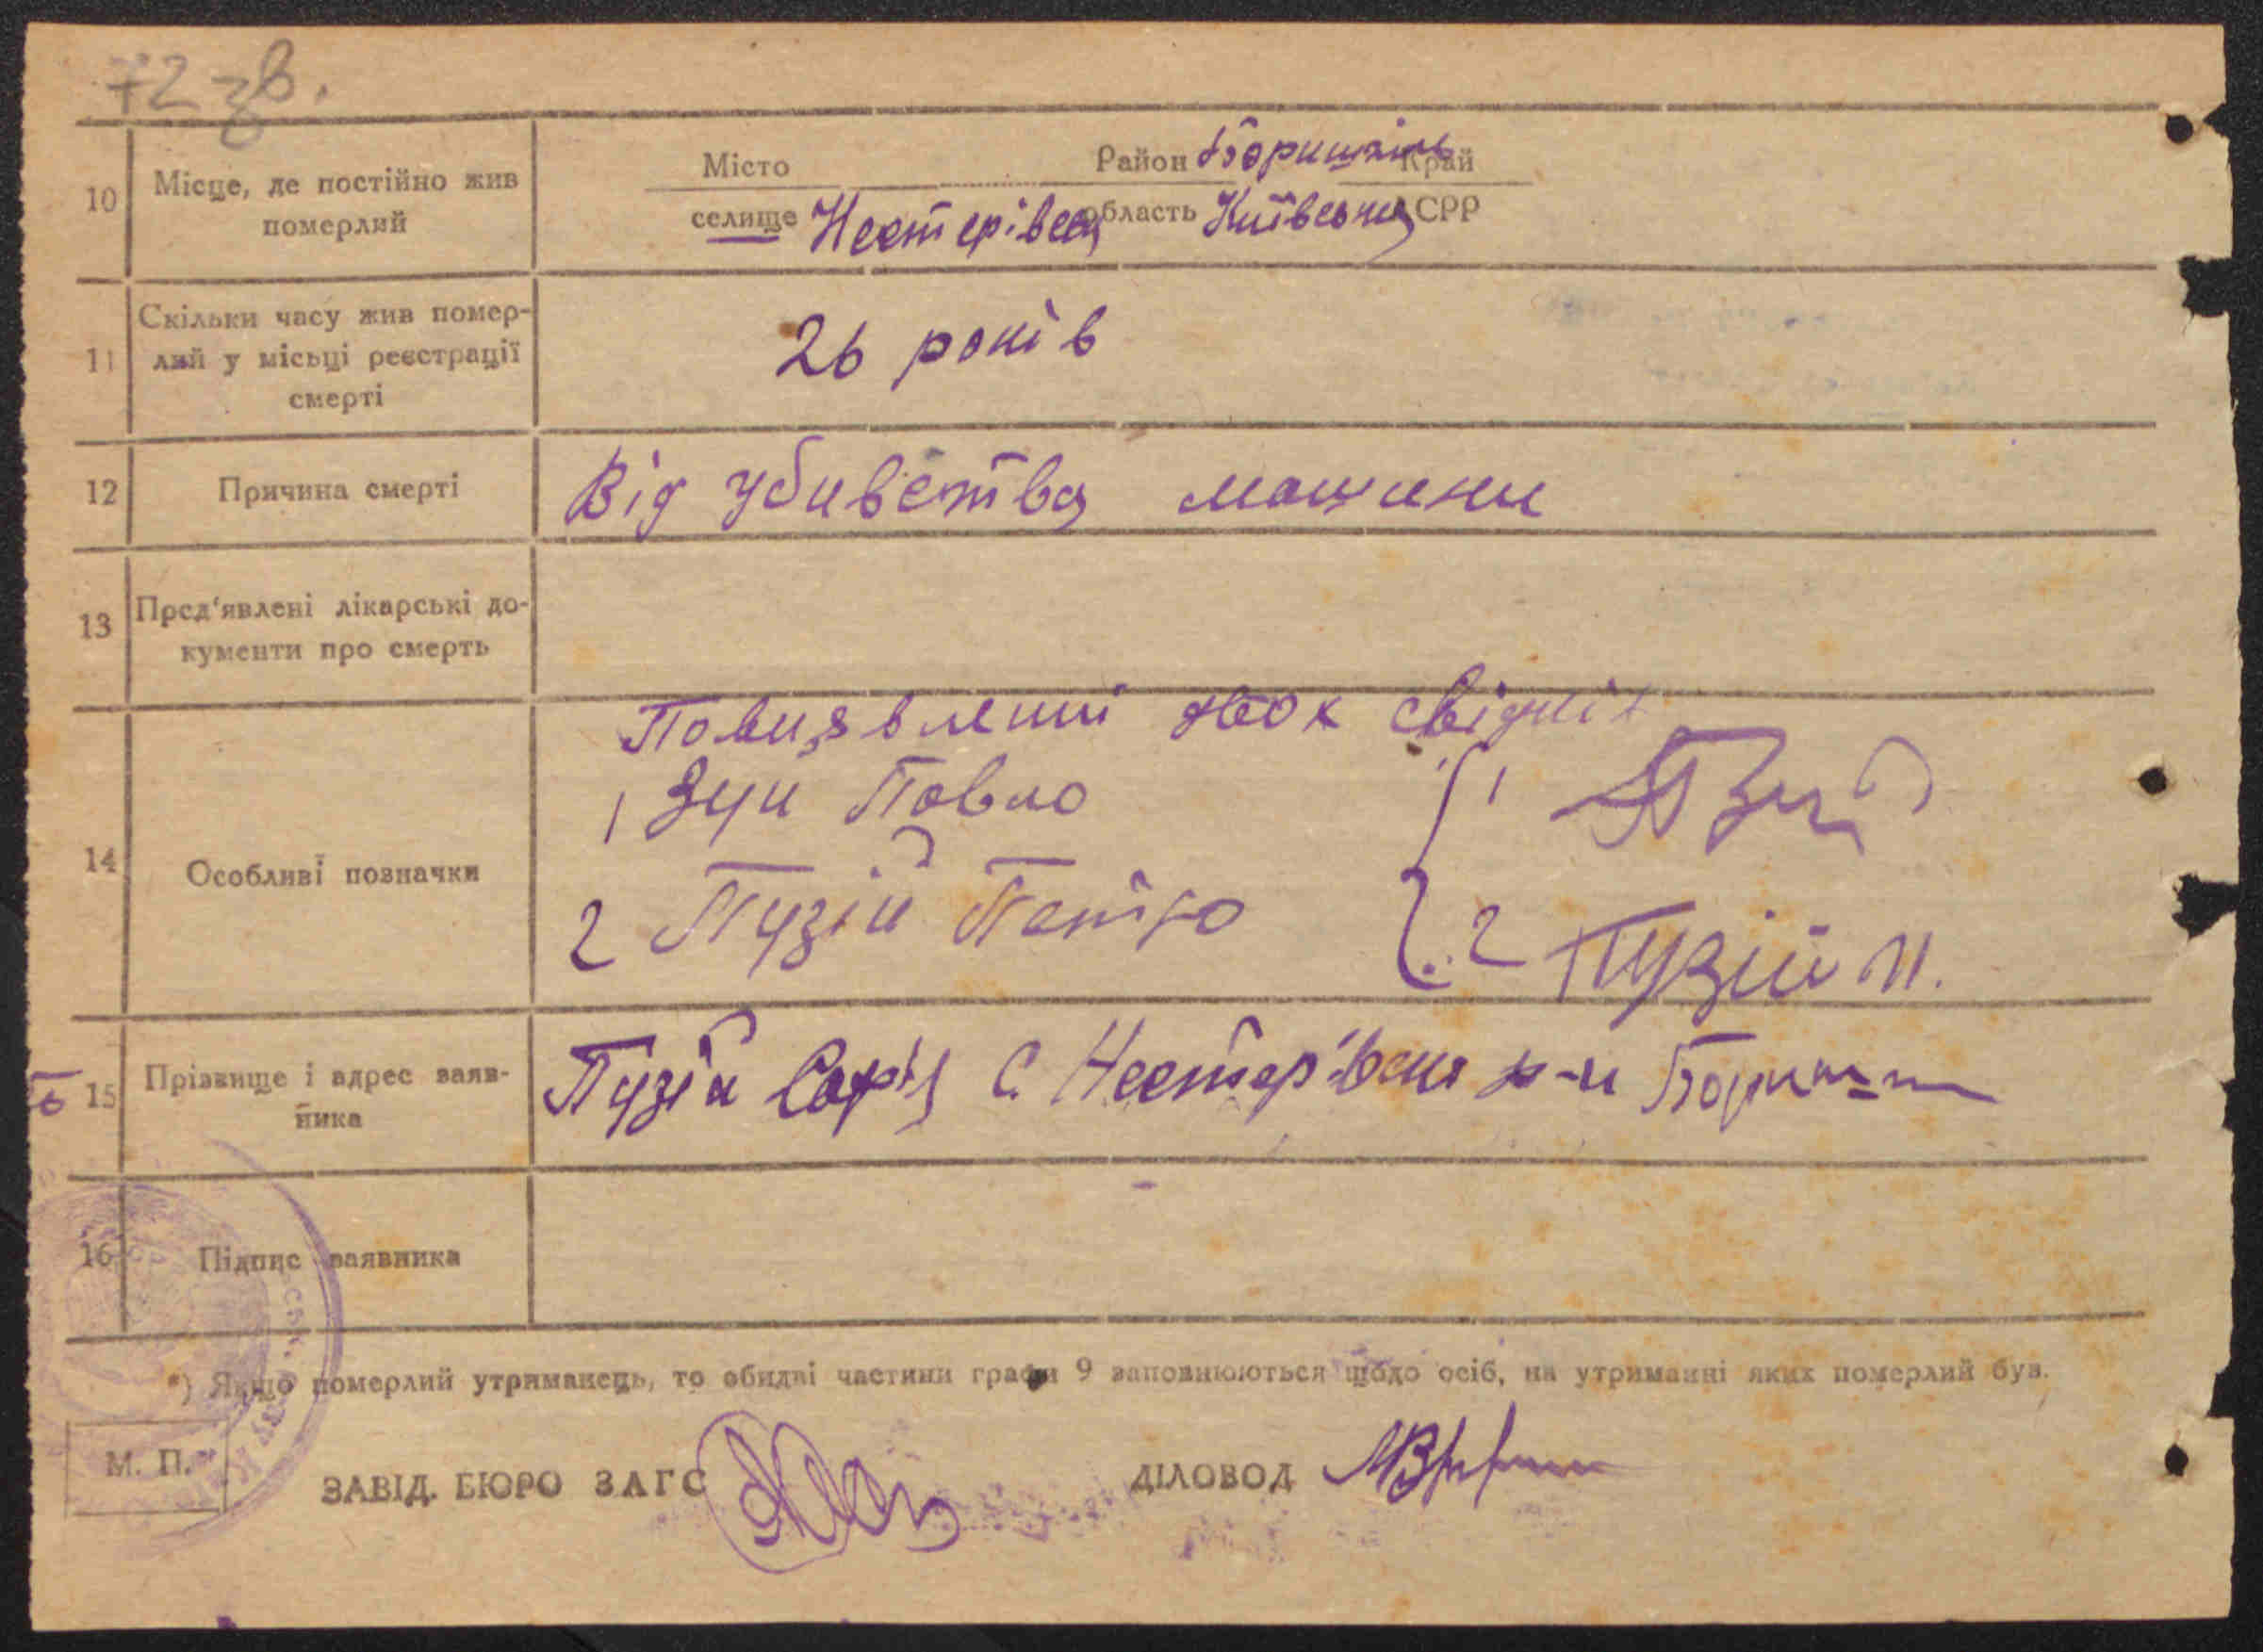 72 зв.
10 Місце, де постійно жив померлий
Місто Район Бориспіль Край
селище Нестерівка область Київська АСРР
11 Скільки часу жив помер-
лий у місьці реєстрації
смерті
26 років
12 Причина смерті
Від убивства машини
13 Пред'явлені лікарські до-
кументи про смерть
14 Особливі позначки
двох свідків
1 Зуй Павло
2 Пузій Петро
1 Зуй
2 Пузій П.
15 Прізвище і адрес заяв-
ника
Пузій с. Нестерівка р-н
16 Підпис заявника
*) Якщо померлий утриманець, то обидві частини графи 9 заповнюються щодо осіб, на утриманні яких померлий був.
М. П.
ЗАВІД. БЮРО ЗАГС
ДІЛОВОД